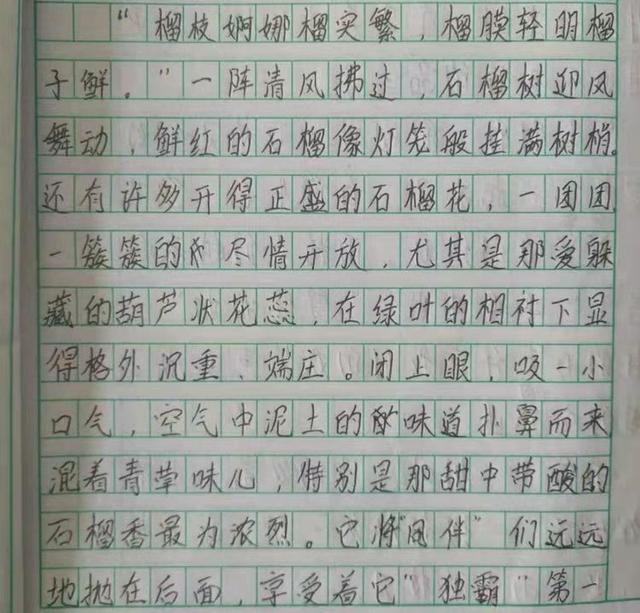 “榴枝婀娜榴实繁，榴膜轻明榴
子鲜。”一阵清风拂过，石榴树迎风
舞动，鲜红的石榴像灯笼般挂满树梢。
还有许多开得正盛的石榴花，一团团，
一簇簇的尽情开放，尤其是那爱躲
藏的葫芦状花蕊，在绿叶的相衬下显
得格外沉重、端庄。闭上眼，吸一小
口气，空气中泥土的味道扑鼻而来
混着青草味儿，特别是那甜中带酸的
石榴香最为浓烈。它将“同伴”们远远
地抛在后面，享受着它“独霸”第一